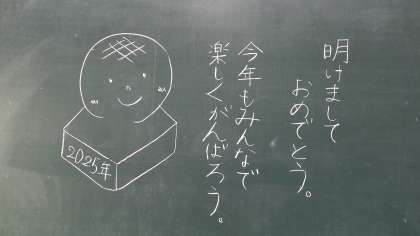 明けまして
おめでとう。
今年もみんなで
楽しくがんばろう。
2025年